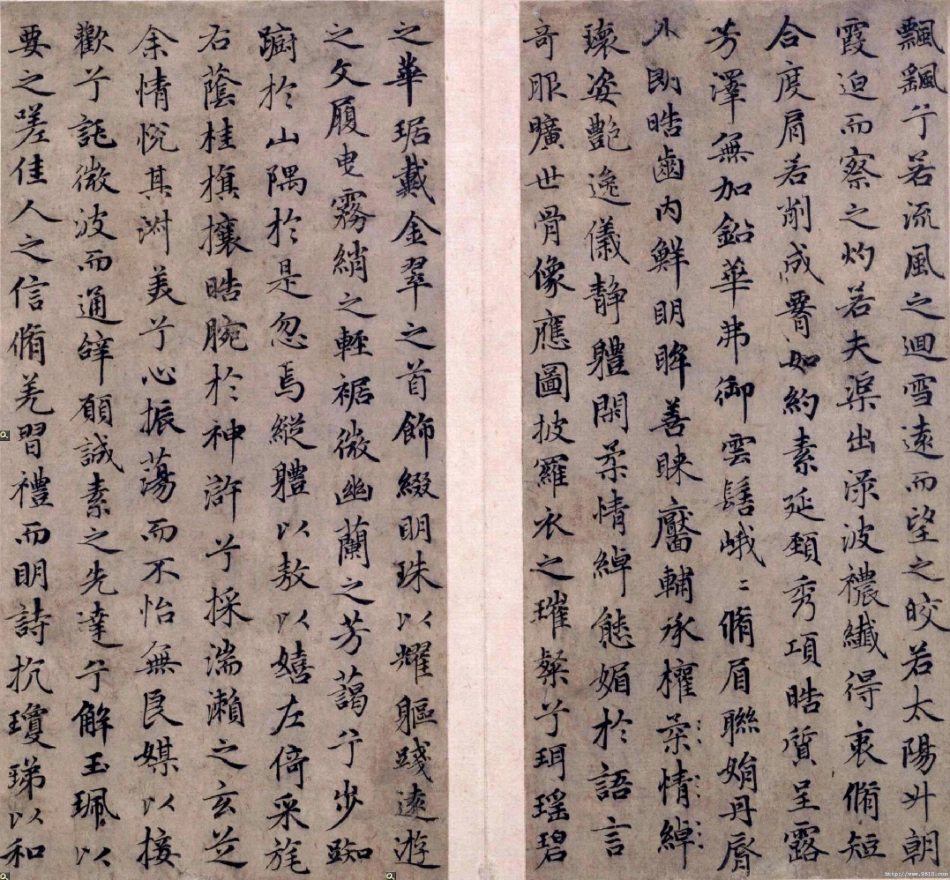 飄飖兮若流風之迴雪遠而望之皎若太陽升朝
霞迫而察之灼若夫渠出淥波穠纖得衷脩短
合度肩若削成腰如約素延頸秀項皓質呈露
芳澤無加鉛華弗御雲髻峨〻脩眉聯娟丹脣
外朗皓齒內鮮明眸善睞靨輔承權柔情綽
瓌姿艷逸儀靜體閑柔情綽態媚於語言
奇服曠世骨像應圖披羅衣之璀粲兮珥瑤碧
之華琚戴金翠之首飾綴明珠以耀軀踐遠遊
之文履曳霧綃之輕裾微幽蘭之芳藹兮步踟
躕於山隅於是忽焉縱體以敖以嬉左倚采旄
右蔭桂旗攘皓腕於神滸兮採湍瀨之玄芝
余情悅其淑美兮心振蕩而不怡無良媒以接
歡兮託微波而通辭願誠素之先達兮解玉珮以
要之嗟佳人之信脩羌習禮而明詩抗瓊珶以和